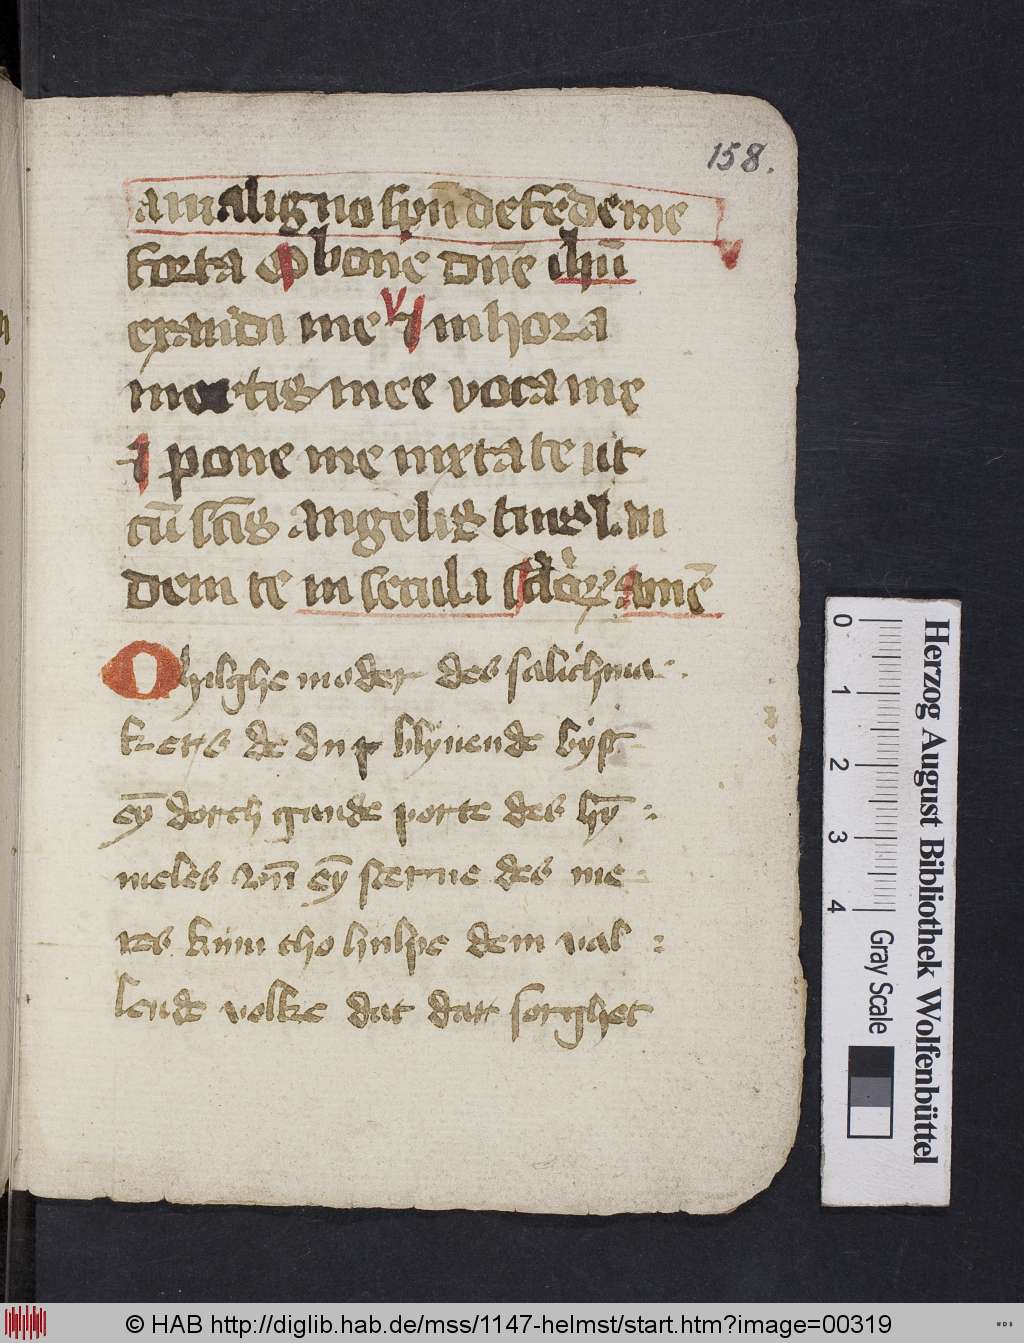 158.
a maligno spū defēde me
forta O bone dn̄e ihū
exaudi me ⁊ in hora
mortis mee voca me
⁊ pone me iuxta te ut
cū sc̄is angelis tuis la vdi
dem te in secula sc̄lor amē
O hilghe moder des salichma
kers de du p blyuende byst
ey̅ dorch gande porte des hy̅
meles vn̄ ey̅ sterne des me
res kum tho hulpe dem val
lende volke dat dar sorghet
Herzog August Bibliothek Wolfenbüttel
0 1 2 3 4 Gray Scale
© HAB http://diglib.hab.de/mss/1147-helmst/start.htm?image=00319
WDB